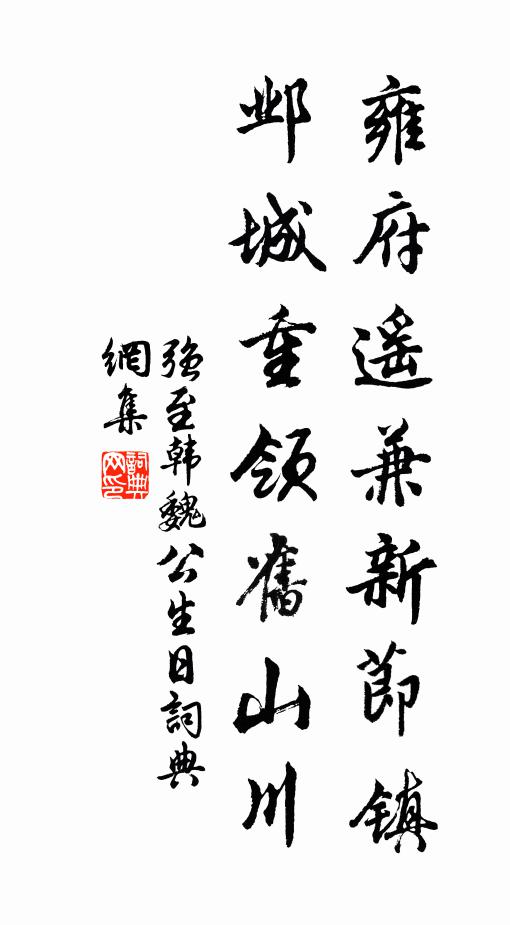 雍府遥兼新節鎮
邺城重领舊山川
强至韩魏公生日詞典
網集
詞典網印